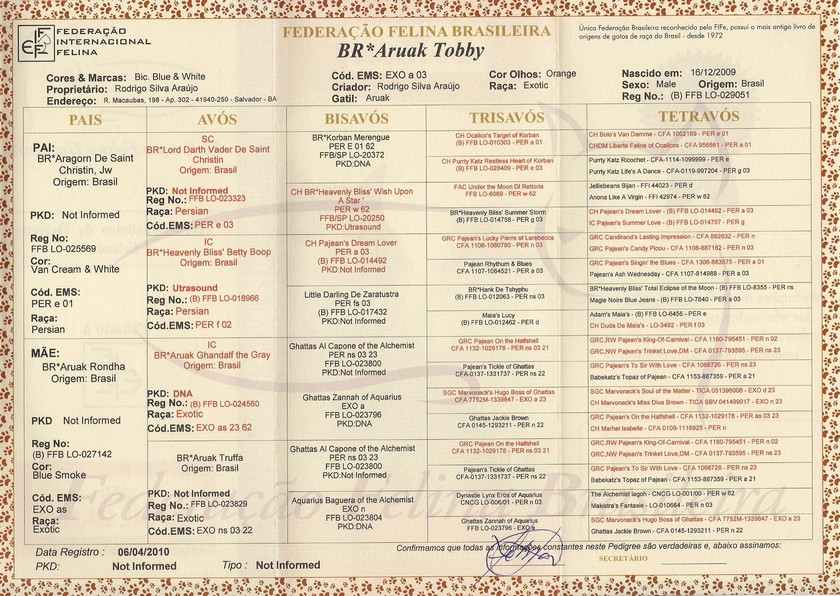 FEDERAÇÃO
INTERNACIONAL
FELINA
FIFe
FEDERAÇÃO FELINA BRASILEIRA
BR*Aruak Tobby
Única Federação Brasileira reconhecida pela FIFe, possui o mais antigo livro de
origens de gatos de raça do Brasil - desde 1972
Cores & Marcas: Bic. Blue & White
Proprietário: Rodrigo Silva Araújo
Endereço: R. Macaubas, 198 - Ap. 302 - 41940-250 - Salvador - BA
Cód. EMS: EXO a 03
Cor Olhos: Orange
Criador: Rodrigo Silva Araújo
Raça: Exotic
Gatil: Aruak
Nascido em: 16/12/2009
Sexo: Male Origem: Brasil
Reg No.: (B) FFB LO-029051
PAIS
AVÓS
BISAVÓS
TRISAVÓS
TETRAVÓS
PAI:
BR*Aragorn De Saint
Christin, Jw
Origem: Brasil
PKD: Not Informed
Reg No:
FFB LO-025569
Cor:
Van Cream & White
Cód. EMS:
PER e 01
Raça:
Persian
MÃE:
BR*Aruak Rondha
Origem: Brasil
PKD Not Informed
Reg No:
(B) FFB LO-027142
Cor:
Blue Smoke
Cód. EMS:
EXO as
Raça:
Exotic
SC
BR*Lord Darth Vader De Saint
Christin
Origem: Brasil
PKD: Not Informed
Reg No.: FFB LO-023323
Raça: Persian
Cód.EMS: PER e 03
IC
BR*Heavenly Bliss' Betty Boop
Origem: Brasil
PKD: Utrasound
Reg No.: (B) FFB LO-018966
Raça: Persian
Cód.EMS: PER f 02
IC
BR*Aruak Ghandalf the Gray
Origem: Brasil
PKD: DNA
Reg No.: (B) FFB LO-024560
Raça: Exotic
Cód.EMS: EXO as 23 62
BR*Aruak Truffa
Origem: Brasil
PKD: Not Informed
Reg No.: FFB LO-023829
Raça: Exotic
Cód.EMS: EXO ns 03 22
BR*Korban Merengue
PER E 01 62
FFB/SP LO-20372
PKD:DNA
CH BR*Heavenly Bliss' Wish Upon
A Star '
PER w 62
FFB/SP LO-20250
PKD:Utrasound
CH Pajean's Dream Lover
PER a 03
(B) FFB LO-014492
PKD:Not Informed
Little Darling De Zaratustra
PER fs 03
(B) FFB LO-017432
PKD:Not Informed
Ghattas Al Capone of the Alchemist
PER ns 03 23
FFB LO-023800
PKD:Not Informed
Ghattas Zannah of Aquarius
EXO a
FFB LO-023796
PKD:DNA
Ghattas Al Capone of the Alchemist
PER ns 03 23
FFB LO-023800
PKD:Not Informed
Aquarius Baguera of the Alchemist
EXO n
FFB LO-023804
PKD:DNA
CH Ocalico's Target of Korban
(B) FFB LO-010303 - PER a 01
CH Purrty Katz Restless Heart of Korban
(B) FFB LO-028409 - PER e 03
FAC Under the Moon DI Rettoria
FFB LO-6069 - PER w 62
BR*Heavenly Bliss' Summer Storm
(B) FFB LO-014758 - PER g 03
GRC Pajean's Lucky Pierre of Larebecca
CFA 1106-1080780 - PER n 03
Pajean Rhythum & Blues
CFA 1107-1064521 - PER a 03
BR*Hank De Tshyphu
(B) FFB LO-012063 - PER ns 03
Maia's Lucy
(B) FFB LO-012462 - PER d
GRC Pajean On the Halfshell
CFA 1132-1029178 - PER ns 03 21
Pajean's Tickle of Ghattas
CFA-0137-131737 - PER ns 22
SGC Marvonack's Hugo Boss of Ghattas
CFA 7752M-1339847 - EXO a 23
Ghattas Jackie Brown
CFA 0145-1293211 - PER n 22
GRC Pajean On the Halfshell
CFA 1132-1029178 - PER ns 03 21
Pajean's Tickle of Ghattas
CFA-0137-131737 - PER ns 22
Dynastie Lynx Eros of Aquarius
CNCG LO-006/01 - PER n 03
Ghattas Zannah of Aquarius
FFB LO-023796 - EXO a
CH Bolo's Van Damme - CFA 1002169 - PER e 01
CHDM Liberte Feline of Ocalicos - CFA 956661 - PER a 01
Purrty Katz Ricochet - CFA-1114-1099999 - PER e
Purrty Katz Life's A Dance - CFA-0119-997204 - PER g 03
Jelliebeans Bijan - FFI 44023 - PER d
Anona Like A Virgin - FFI 42974 - PER w 62
CH Pajean's Dream Lover - (B) FFB LO-014492 - PER a 03
IC Pajean's Summer Love - (B) FFB LO-014757 - PER g
GRC Candirand's Lasting Impression - CFA 882632 - PER n
GRC Pajean's Candy Picou - CFA 1106-887162 - PER n 03
GRC Pajean's Singin' the Blues - CFA 1306-883575 - PER a 01
Pajean's Ash Wednesday - CFA 1107-814988 - PER a 03
BR*Heavenly Bliss' Total Eclipse of the Moon - (B) FFB LO-8355 - PER ns
Magie Noire Blue Jeans - (B) FFB LO-7840 - PER a 03
Adam's Maia's - (B) FFB LO-8456 - PER e
CH Duda De Maia's - LO-3492 - PER f 03
GRC,RW Pajean's King-Of-Carnival - CFA 1180-795451 - PER n 02
GRC,NW Pajean's Trinket Love,DM - CFA 0137-793595 - PER ns 23
GRC Pajean's To Sir With Love - CFA 1066726 - PER ns 23
Babekatz's Topaz of Pajean - CFA 1153-887359 - PER a 21
SGC Marvonack's Soul of the Matter - TICA 051396006 - EXO d 23
CH Marvonack's Miss Diva Brown - TICA SBV 041499017 - EXO n 23
GRC Pajean's On the Halfshell - CFA 1132-1029178 - PER as 03 23
CH Marhei Isabelle - CFA 0109-1116925 - PER n
GRC,RW Pajean's King-Of-Carnival - CFA 1180-795451 - PER n 02
GRC,NW Pajean's Trinket Love,DM - CFA 0137-793595 - PER ns 23
GRC Pajean's To Sir With Love - CFA 1066726 - PER ns 23
Babekatz's Topaz of Pajean - CFA 1153-887359 - PER a 21
The Alchemist Iagoh - CNCG LO-001/00 - PER w 62
Makistra's Fantasie - LO-010664 - PER n 03
SGC Marvonack's Hugo Boss of Ghattas - CFA 7752M-1339847 - EXO a 23
Ghattas Jackie Brown - CFA 0145-1293211 - PER n 22
Federação Felina Brasileira
Data Registro : 06/04/2010
PKD: Not Informed
Tipo : Not Informed
Confirmamos que todas as informações constantes neste Pedigree são verdadeiras e, abaixo assinamos:
SECRETÁRIO